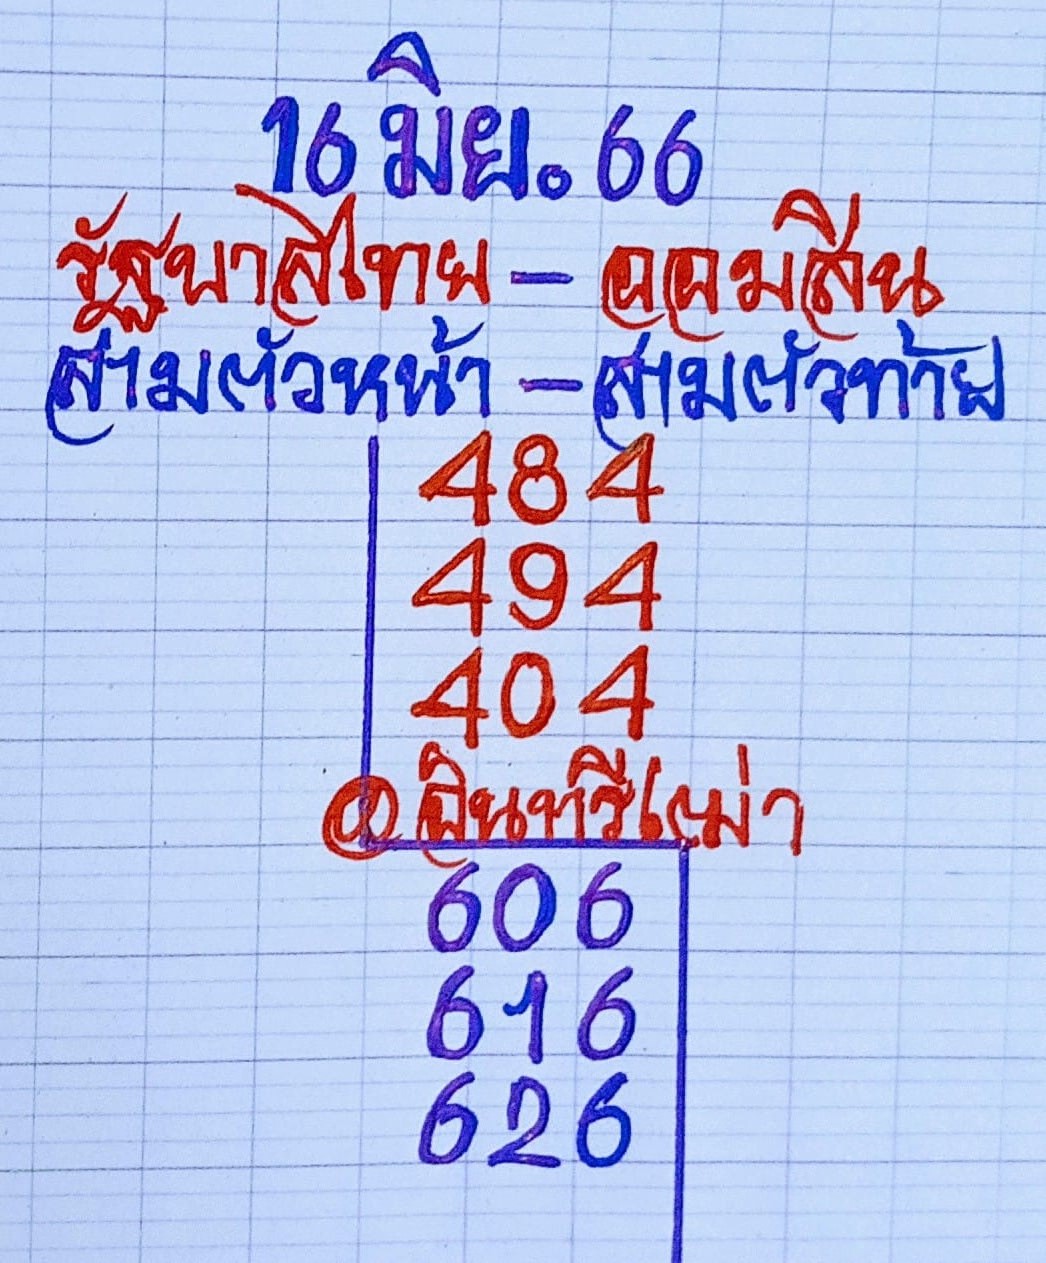 16 มิย. 66
รัฐบาลไทย - ออมสิน
สามตัวหน้า - สามตัวท้าย
484
494
404
อินทรีเผ่า
606
616
626